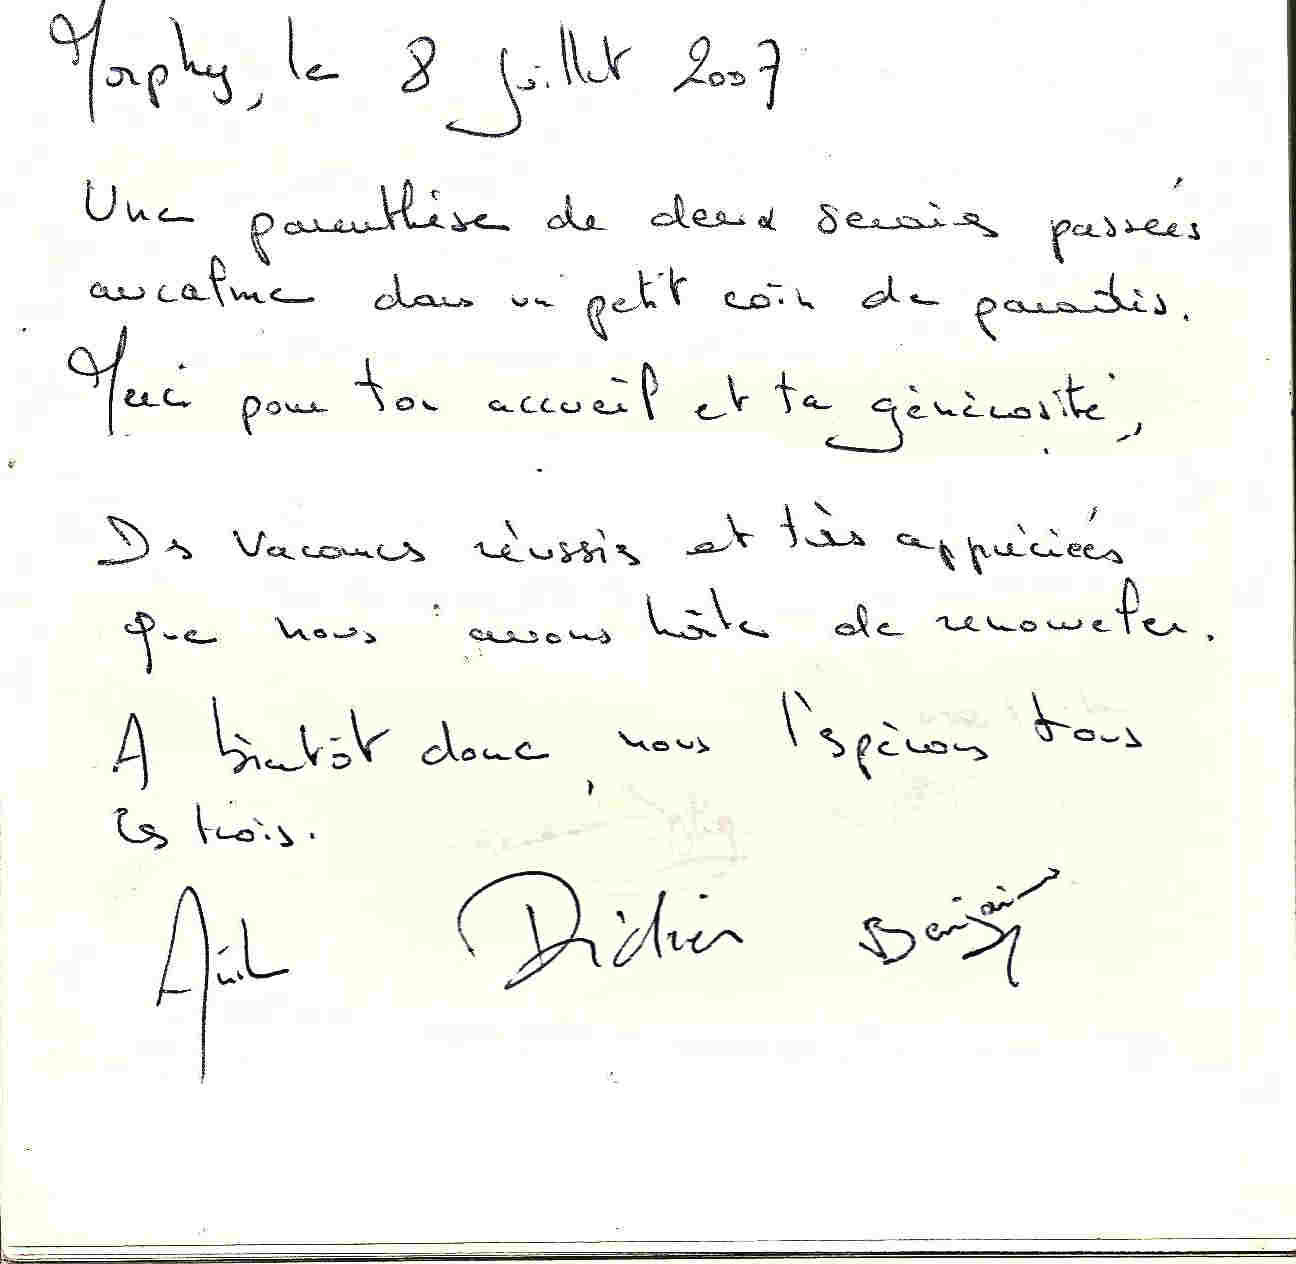 Morphy, le 8 Juillet 2007
Une parenthèse de deux semaines passées
au calme dans un petit coin de paradis.
Merci pour ton accueil et ta générosité,
Des vacances réussis et très appréciées
que nous avons hâte de renouveler.
A bientôt donc, nous l'espérons tous
les trois.
Didier Benjamin